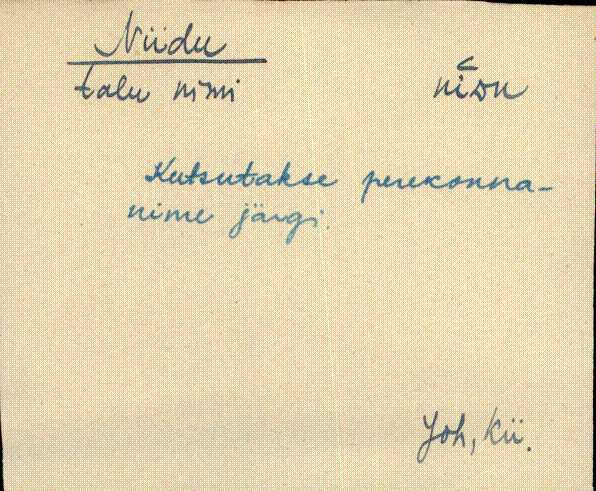 Niidu
talu nimi
Kutsutakse perekonna-
nime järgi.
Joh, Kii.